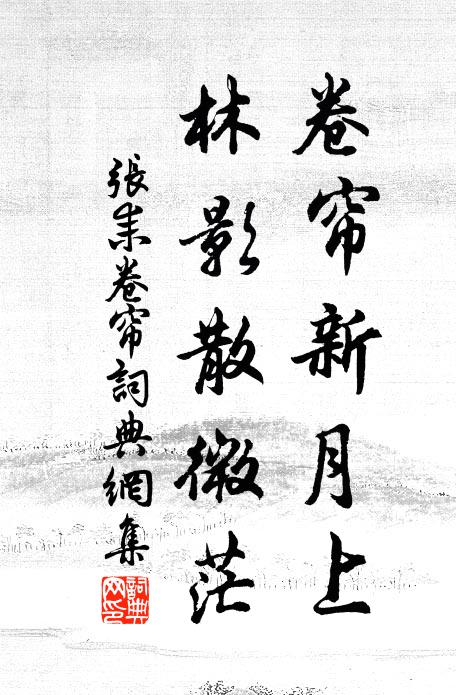 卷帘新月上
林影散微茫
張耒卷帘詞典網集
詞典網印